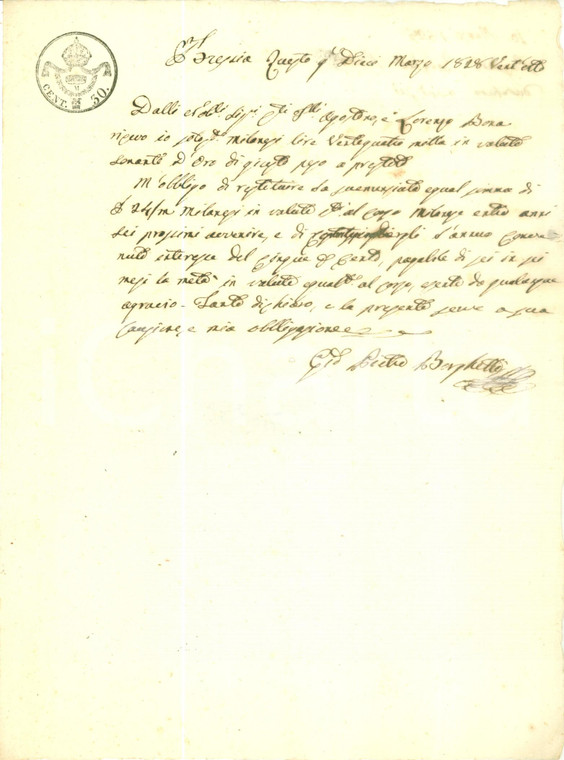 CENT. 50.
Brescia Questo g. Dieci Marzo 1828 Ventotto
Dalli Nob. Sigi. fratelli Agostino, e Lorenzo Bona
ricevo io sottos. milanesi lire Ventiquatro milla in valute
sonanti d'Oro di giusto peso a prestito
M'obbligo di restituire la sumenziata equal somma di
£ 24/m Milanesi in valute al corso Milanese entro anni
sei prossimi avvenire, e di l'annuo conve-
nuto interesse del cinque per cento, pagabile di sei in sei
mesi la metà in valute al corso, esente da qualunque
agravio. Tanto dichiaro, e la presente serve a sua
cauzione, e mia obbligazione
Gio. Pietro Borghetti